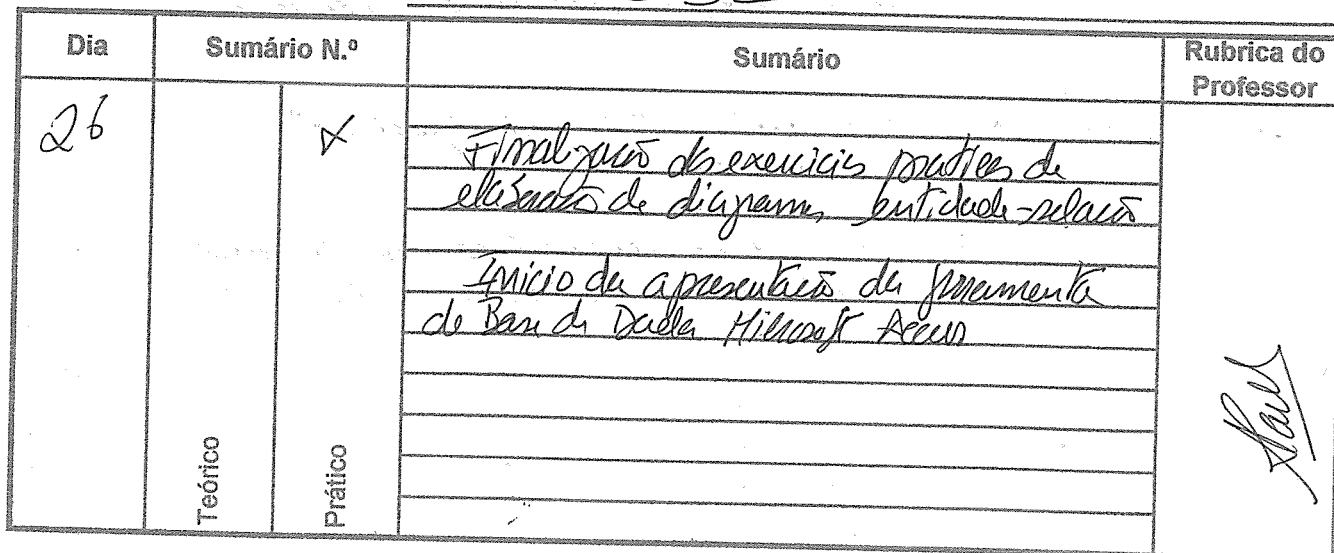 Dia Sumário N.º Sumário Rubrica do Professor
26 X
Finalização dos exercícios práticos de
elaboração de diagramas entidade-relação
Início da apresentação da ferramenta
de Base de Dados Microsoft Access
Teórico Prático